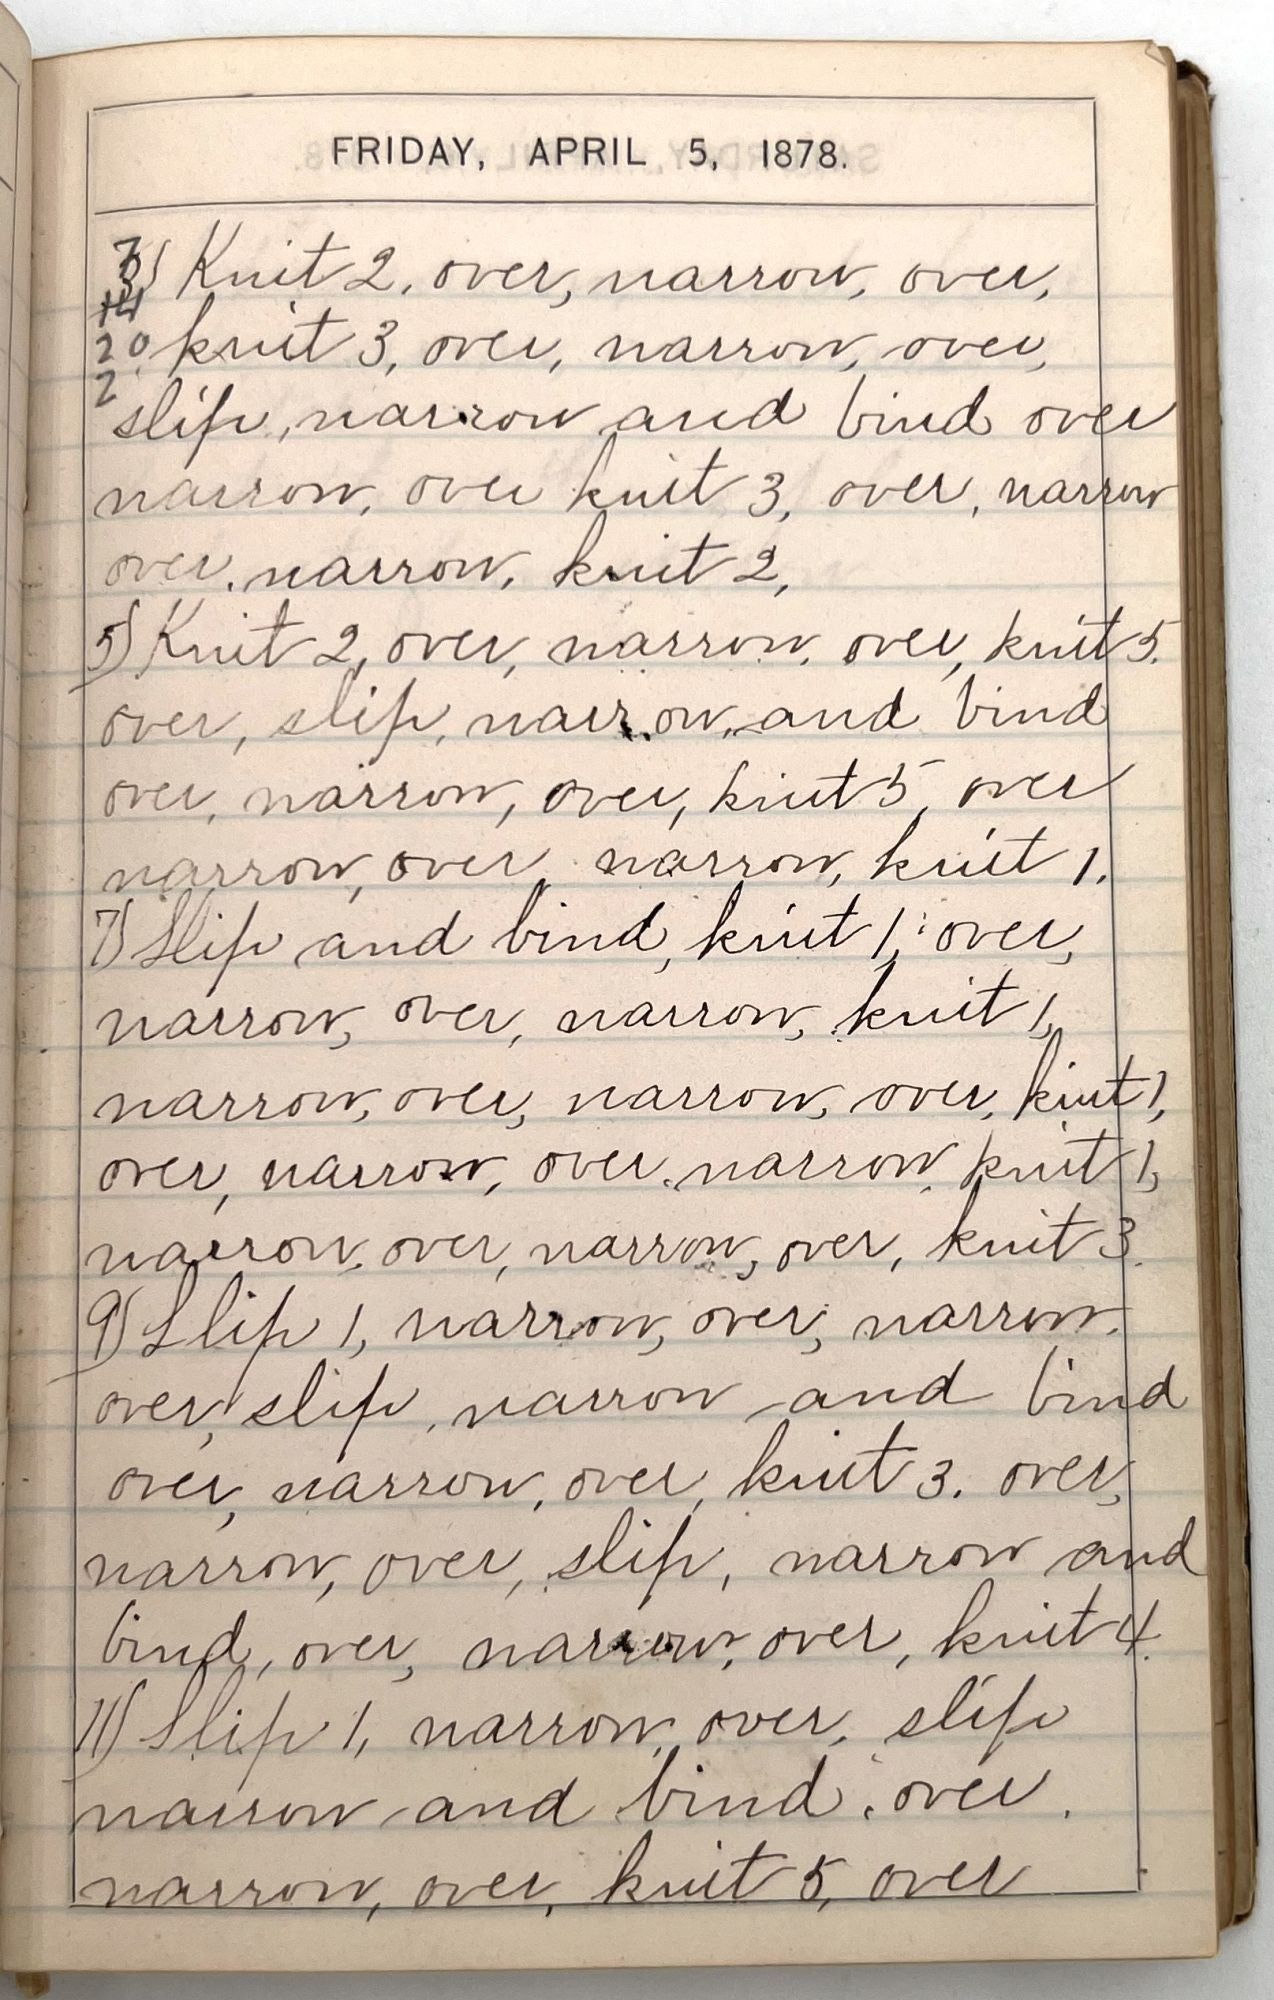 FRIDAY, APRIL 5, 1878.
7
3) Knit 2, over, narrow, over,
14
20 knit 3, over, narrow, over,
2
slip, narrow and bind over
narrow, over knit 3, over, narrow
over, narrow, knit 2,
5) Knit 2, over, narrow, over, knit 5.
over, slip, narrow, and bind
over, narrow, over, knit 5, over
narrow, over, narrow, knit 1.
7) Slip and bind, knit 1, over,
narrow, over, narrow, knit 1,
narrow, over, narrow, over, knit 1,
over, narrow, over, narrow, knit 1,
narrow, over, narrow, over, knit 3.
9) Slip 1, narrow, over, narrow.
over, slip, narrow and bind
over, narrow, over, knit 3. over,
narrow, over, slip, narrow and
bind, over, narrow, over, knit 4.
11) Slip 1, narrow, over, slip
narrow and bind, over.
narrow, over, knit 5, over